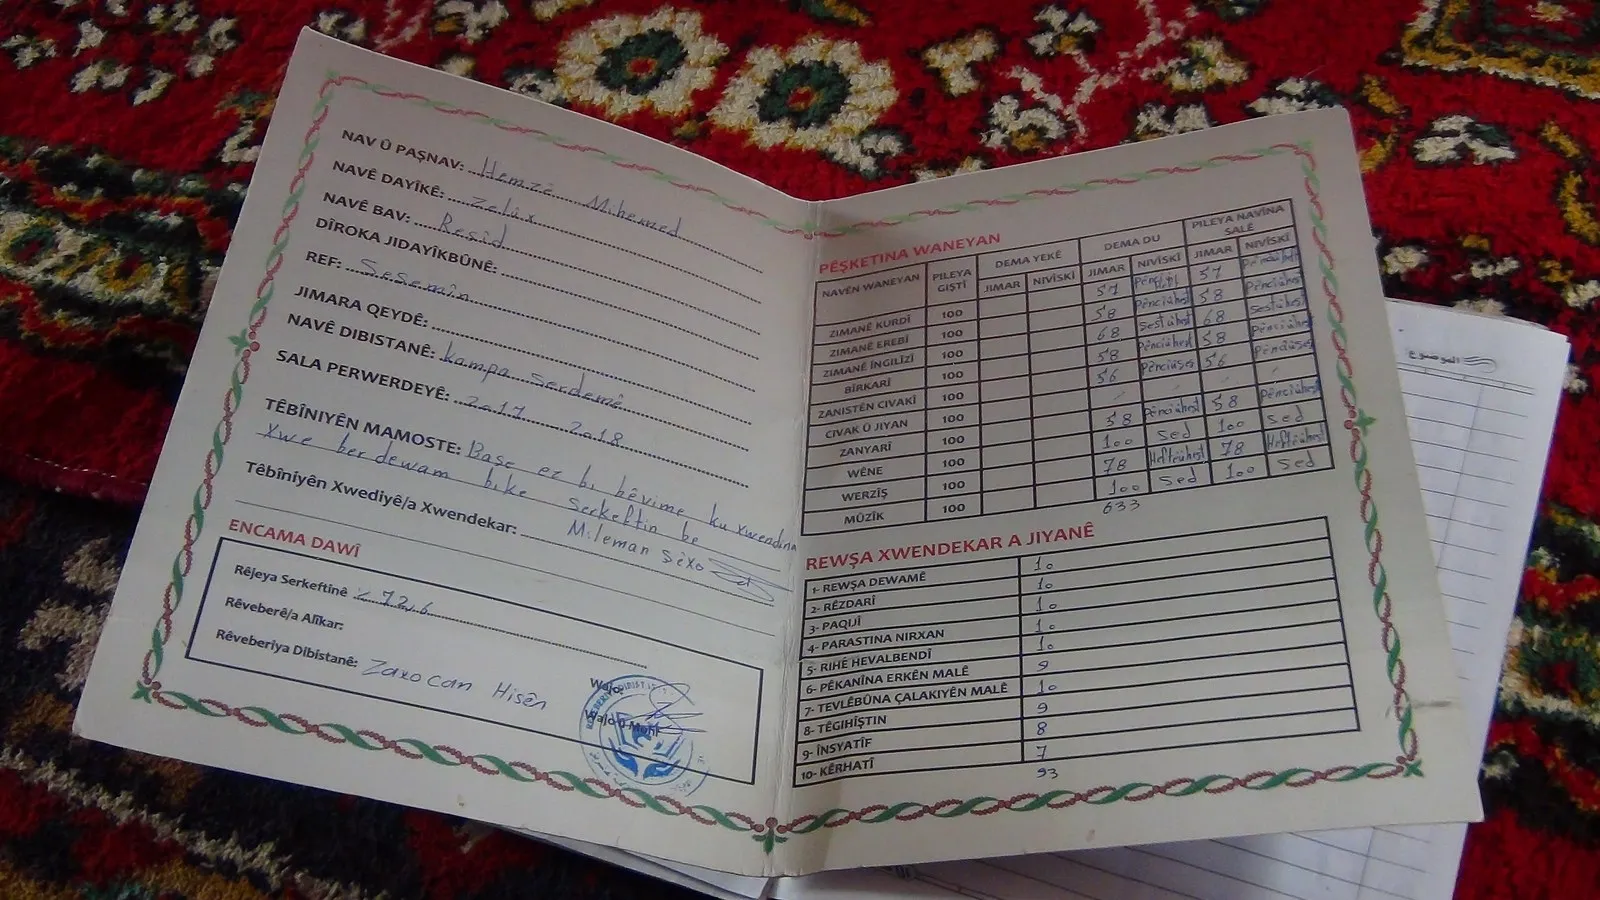 NAV Û PAŞNAV: Hemzê Mihemed
NAVÊ DAYÎKÊ: Zelûx
NAVÊ BAV: Reşîd
DÎROKA JIDAYÎKBÛNÊ:
REF: Sêsemîn
JIMARA QEYDÊ:
NAVÊ DIBISTANÊ: kampa serdemê
SALA PERWERDEYÊ: 2017 2018
TÊBÎNIYÊN MAMOSTE: Başe ez bi hêvîme ku xwendina
xwe ber dewam bike Serkeftin be
Têbîniyên Xwediyê/a Xwendekar: Mileman Şêxo
ENCAMA DAWÎ
Rêjeya Serkeftinê % 72,6
Rêveberê/a Alîkar: Wajo:
Rêveberiya Dibistanê: Zaxocan Hisên Wajo û Mohr
PÊŞKETINA WANEYAN
NAVÊN WANEYAN PILEYA GIŞTÎ DEMA YEKÊ DEMA DU PILEYA NAVÎNA SALÊ
JIMAR NIVÎSKÎ JIMAR NIVÎSKÎ JIMAR NIVÎSKÎ
ZIMANÊ KURDÎ 100 57 57
ZIMANÊ EREBÎ 100 58 Pênciûheşt 58 Pênciûheşt
ZIMANÊ ÎNGILÎZÎ 100 68 Şestûheşt 68 Şestûheşt
BÎRKARÎ 100 58 Pênciûheşt 58 Pênciûheşt
ZANISTÊN CIVAKÎ 100 56 Pênciûşeş 56 Pênciûşeş
CIVAK Û JIYAN 100
ZANYARÎ 100 58 Pênciûheşt 58 Pênciûheşt
WÊNE 100 100 sed 100 sed
WERZÎŞ 100 78 Heftêûheşt 78 Heftêûheşt
MÛZÎK 100 100 sed 100 sed
633
REWŞA XWENDEKAR A JIYANÊ
1- REWŞA DEWAMÊ 10
2- RÊZDARÎ 10
3- PAQIJÎ 10
4- PARASTINA NIRXAN 10
5- RIHÊ HEVALBENDÎ 10
6- PÊKANÎNA ERKÊN MALÊ 9
7- TEVLÊBÛNA ÇALAKIYÊN MALÊ 10
8- TÊGIHÎŞTIN 9
9- ÎNSYATÎF 8
10- KÊRHATÎ 7
93
الموضوع